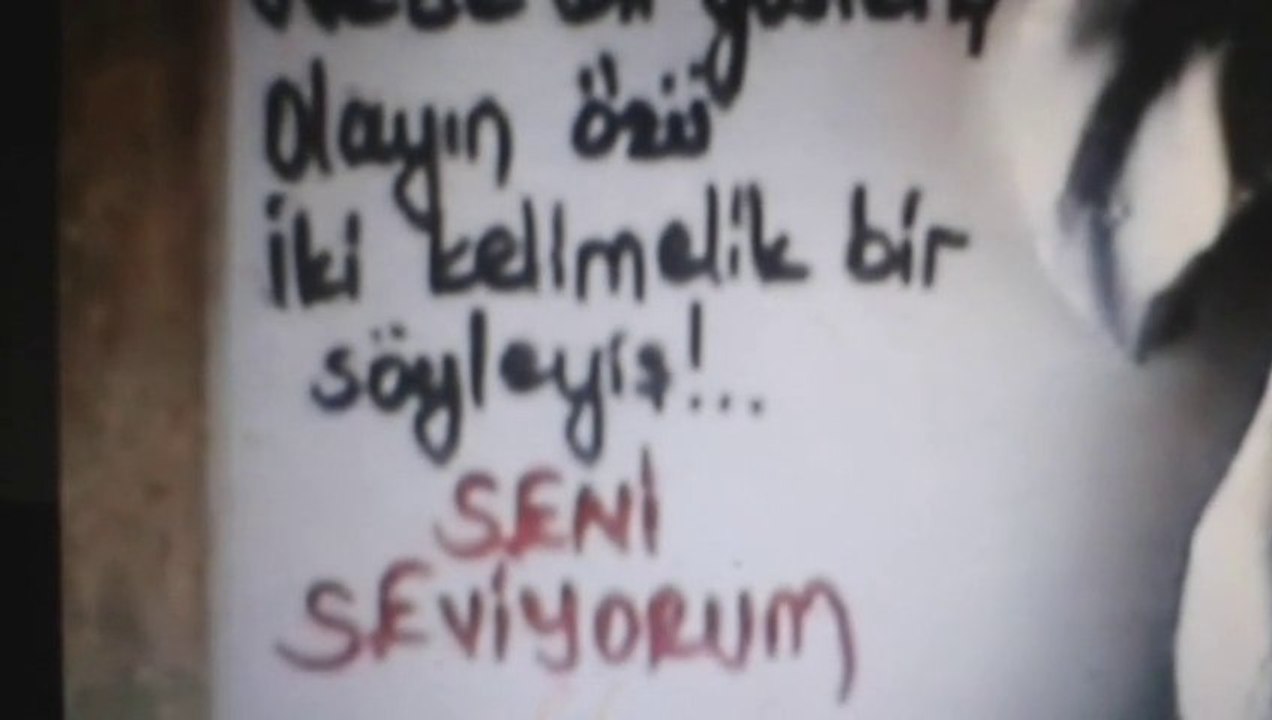 bir gösteriş
Olayın özü
İki kelimelik bir
söyleyiş!...
SENİ
SEVİYORUM